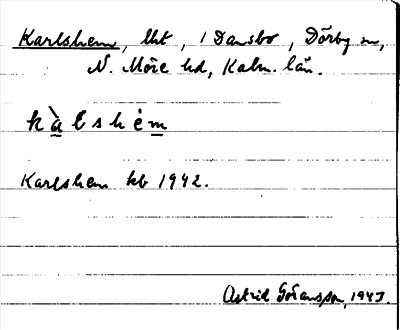 Karlshem, lht, 1 Dansbo, Dörby sn,
N. Möre hd, Kalm. län.
kàlshèm
Karlshem kb 1942.
Astrid Göransson, 1943.